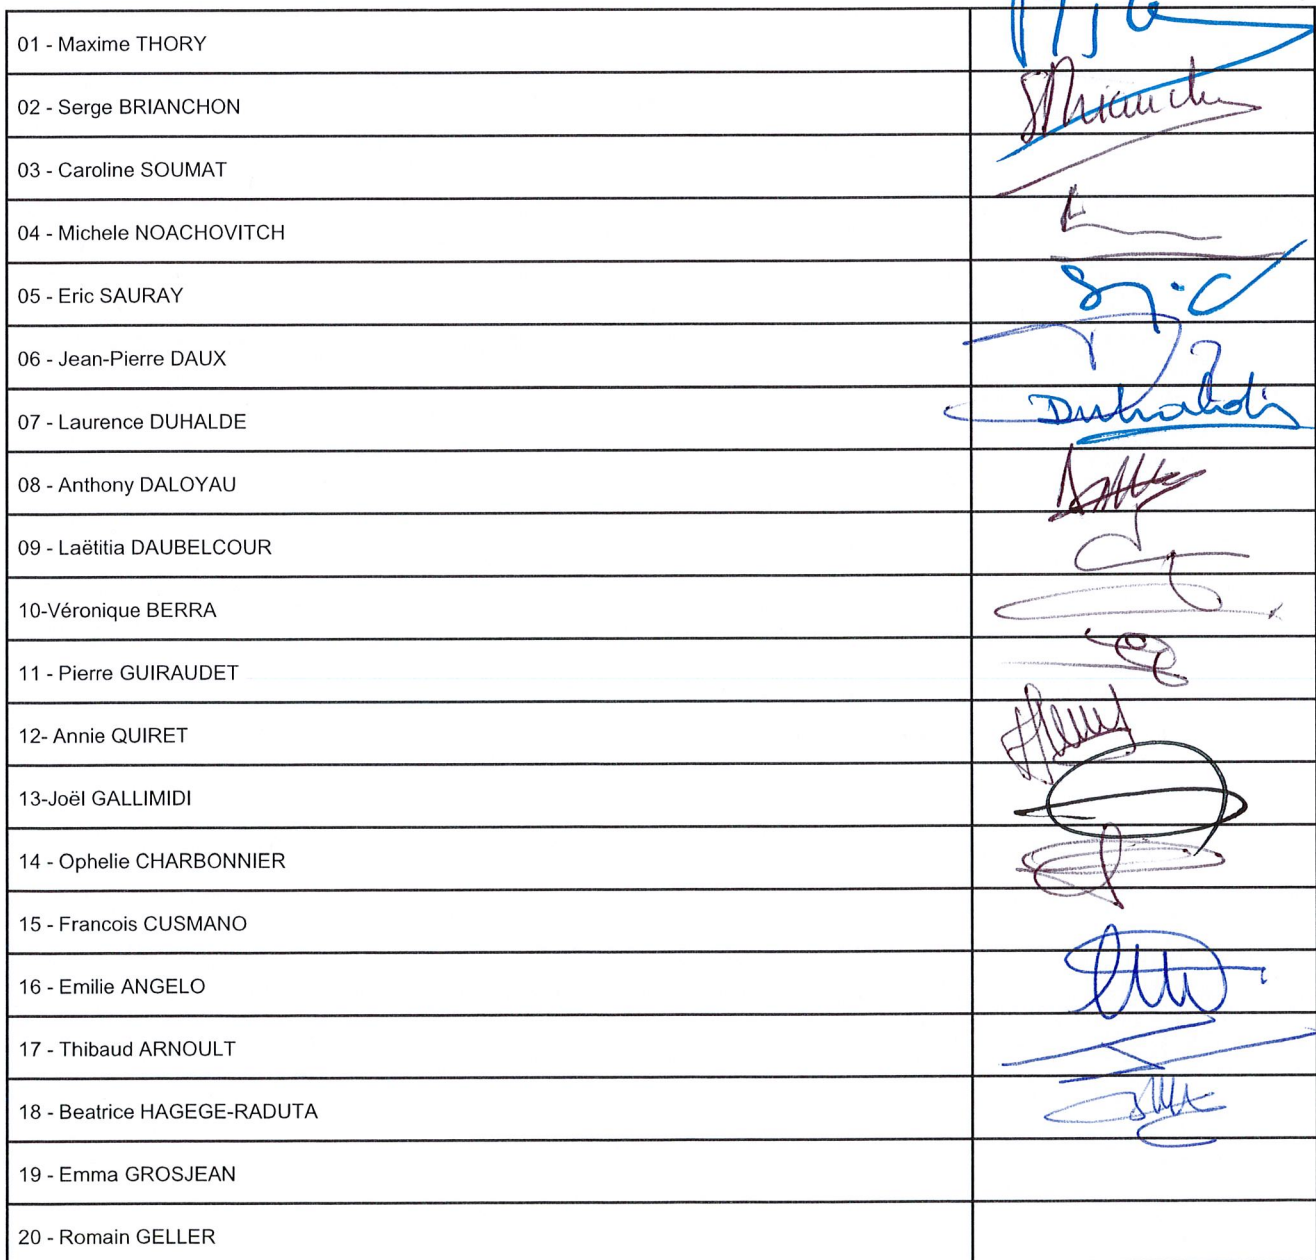 01 - Maxime THORY
02 - Serge BRIANCHON
03 - Caroline SOUMAT
04 - Michele NOACHOVITCH
05 - Eric SAURAY
06 - Jean-Pierre DAUX
07 - Laurence DUHALDE
08 - Anthony DALOYAU
09 - Laëtitia DAUBELCOUR
10-Véronique BERRA
11 - Pierre GUIRAUDET
12- Annie QUIRET
13-Joël GALLIMIDI
14 - Ophelie CHARBONNIER
15 - Francois CUSMANO
16 - Emilie ANGELO
17 - Thibaud ARNOULT
18 - Beatrice HAGEGE-RADUTA
19 - Emma GROSJEAN
20 - Romain GELLER